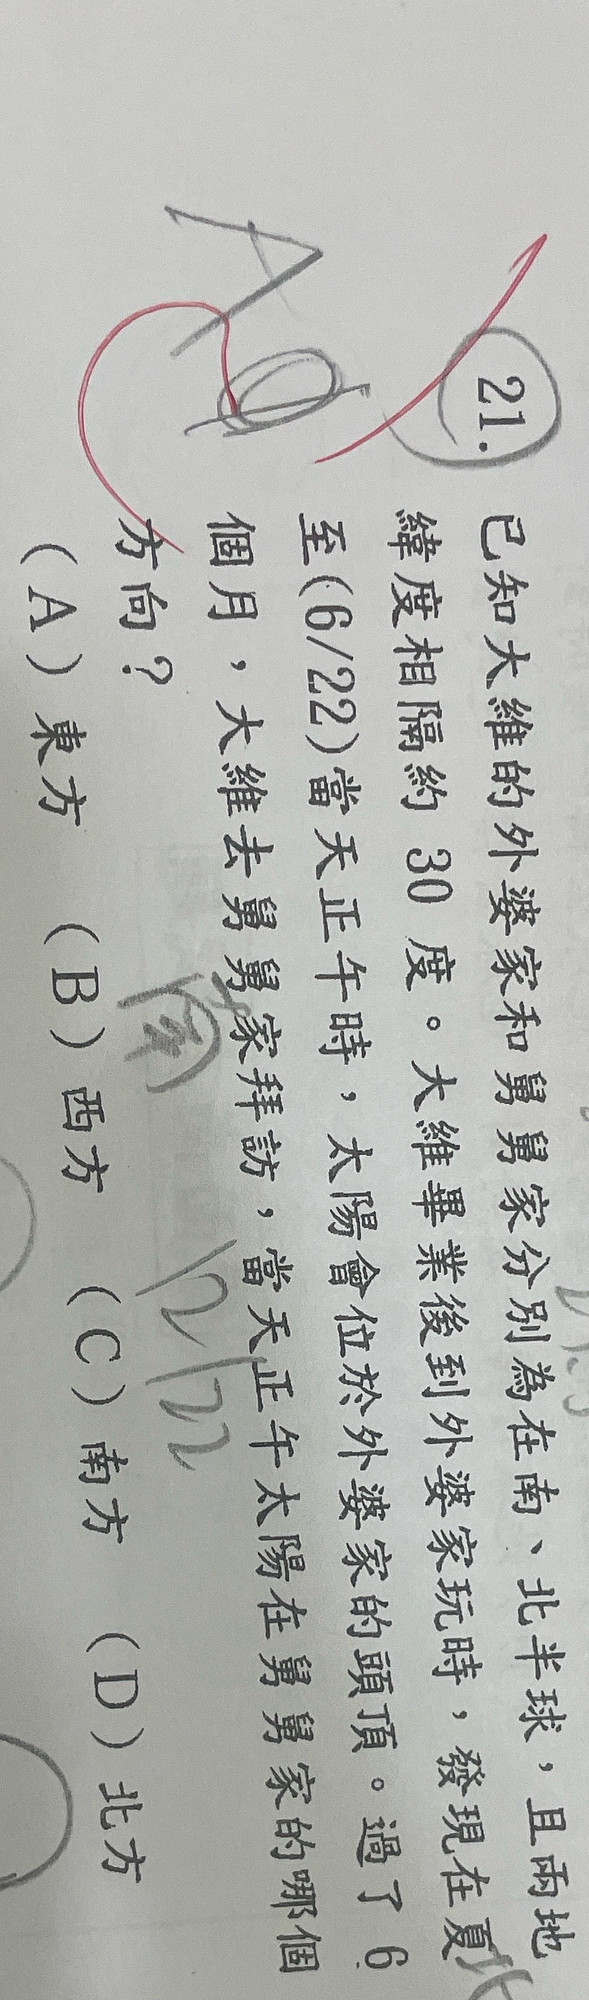 21.
已知大維的外婆家和舅舅家分別為在南、北半球，且兩地
緯度相隔約 30 度。大維畢業後到外婆家玩時，發現在夏
至(6/22)當天正午時，太陽會位於外婆家的頭頂。過了 6
個月，大維去舅舅家拜訪，當天正午太陽在舅舅家的哪個
方向？
12/22
(A)東方 (B)西方 (C)南方 (D)北方